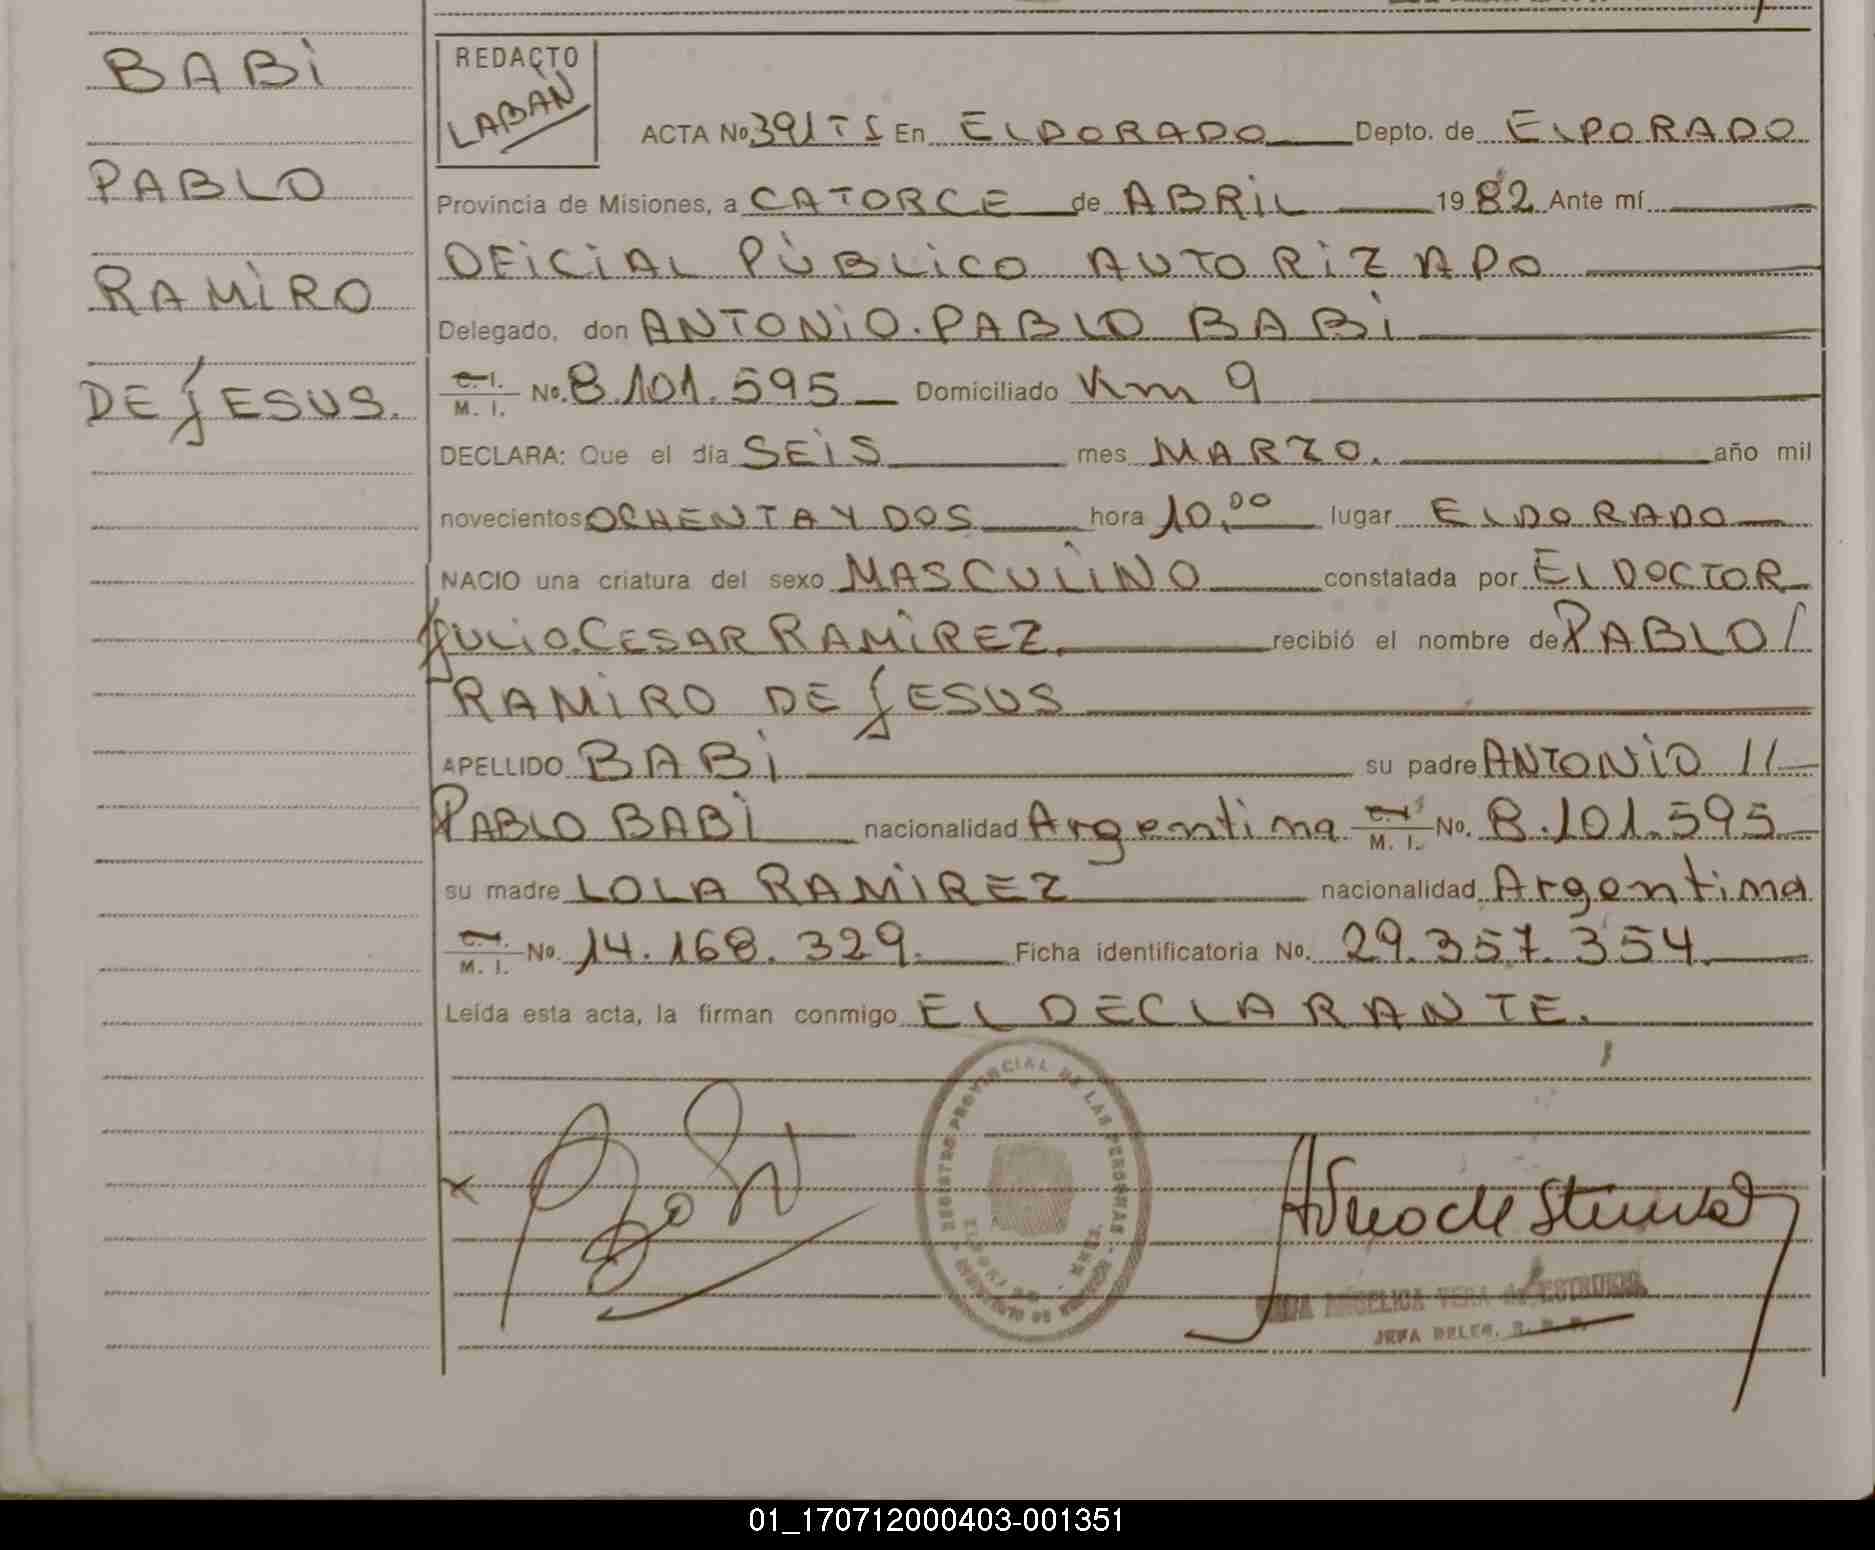 BABI
PABLO
RAMIRO
DE JESUS.
REDACTO
LABAN
ACTA No. 391 TS En ELDORADO Depto. de ELDORADO
Provincia de Misiones, a CATORCE de ABRIL 1982 Ante mí
OFICIAL PÚBLICO AUTORIZADO
Delegado, don ANTONIO. PABLO BABI
C.I. M. I. No. 8.101.595 Domiciliado Km 9
DECLARA: Que el día SEIS mes MARZO. año mil
novecientos OCHENTA Y DOS hora 10,00 lugar ELDORADO
NACIO una criatura del sexo MASCULINO constatada por EL DOCTOR
JULIO.CESAR RAMIREZ. recibió el nombre de PABLO/
RAMIRO DE JESUS
APELLIDO BABI su padre ANTONIO //
PABLO BABI nacionalidad Argentina C.I. M. I. No. 8.101.595
su madre LOLA RAMIREZ nacionalidad Argentina
C.I. M. I. No. 14.168.329. Ficha identificatoria No. 29.357.354.
Leída esta acta, la firman conmigo EL DECLARANTE.
REGISTRO PROVINCIAL DE LAS PERSONAS
ANGELICA VERA de
JEFA DELEG.
01_170712000403-001351